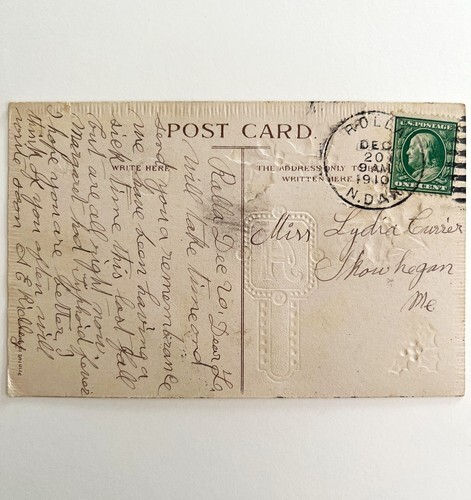 POST CARD.
WRITE HERE
THE ADDRESS ONLY TO BE
WRITTEN HERE
ROLLA
DEC
20
9 AM
1910
N. DAK.
U.S. POSTAGE
ONE CENT
Miss Lydia Currier
Skowhegan
Me
Rolla Dec 20. Dear L.
Will take time and
send you a remembrance
we have been having a
sick time this last fall
but are all right now.
Margaret had Typhoid fever
I hope you are better I
think of you often will
write soon